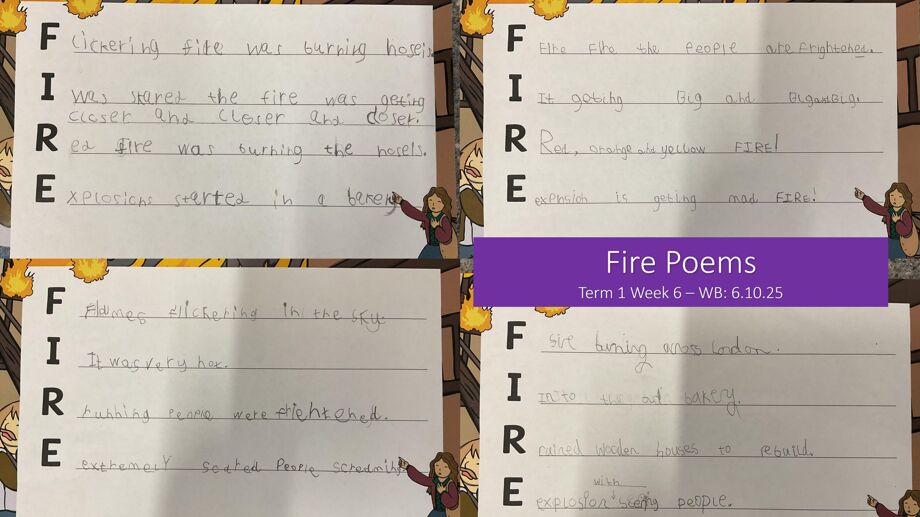 F lickering fire was burning hosels
I was stared the fire was geting
closer and closer and closer.
R ed fire was burning the hosels.
E xplosions started in a bakery
F Fire Fire the people are frightened.
I It gobing Big and Bigand Big!
R Red, orange and yellow FIRE!
E expnsion is geting mad FIRE!
Fire Poems
Term 1 Week 6 – WB: 6.10.25
F Flames flickering in the sky.
I It was very hot.
R running people were frightened.
E extremely scared people screaming
F sire burning across London.
I into the bakery.
R ruined wooden houses to rebuild.
with
E explosion people.